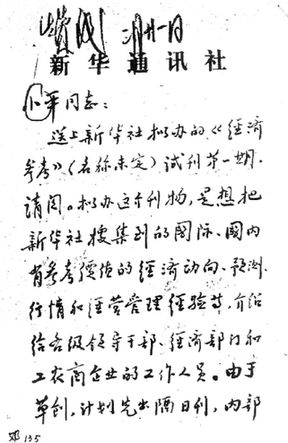 新华通讯社
小平同志：
送上新华社拟办的《经济
参考》（名称未定）试刊第一期，
请阅。拟办这个刊物，是想把
新华社搜集到的国际、国内
有参考价值的经济动向、预测、
行情和经营管理经验等，介绍
给各级领导干部、经济部门和
工农商企业的工作人员。由于
草创，计划先出隔日刊，内部
邓 135